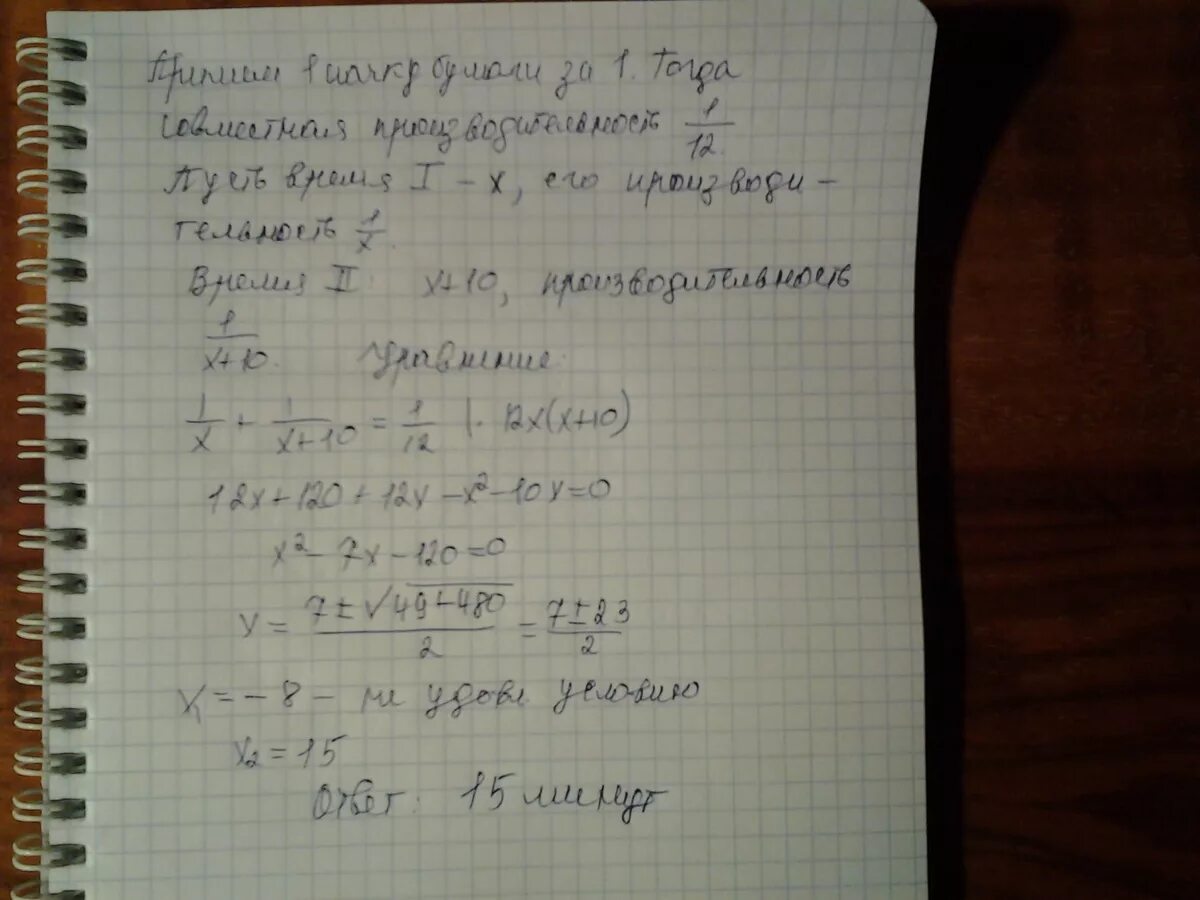 Примем 1 пачку бумаги за 1. Тогда
совместная производительность 1/12.
Пусть время I – x, его производи –
тельность 1/x.
Время II x+10, производительность
1/(x+10). Уравнение:
1/x + 1/(x+10) = 1/12 | · 12x(x+10)
12x + 120 + 12x – x² – 10x = 0
x² – 7x – 120 = 0
x = (7 ± √(49+480))/2 = (7 ± 23)/2
x₁ = – 8 – не удовл условию
x₂ = 15
Ответ: 15 минут